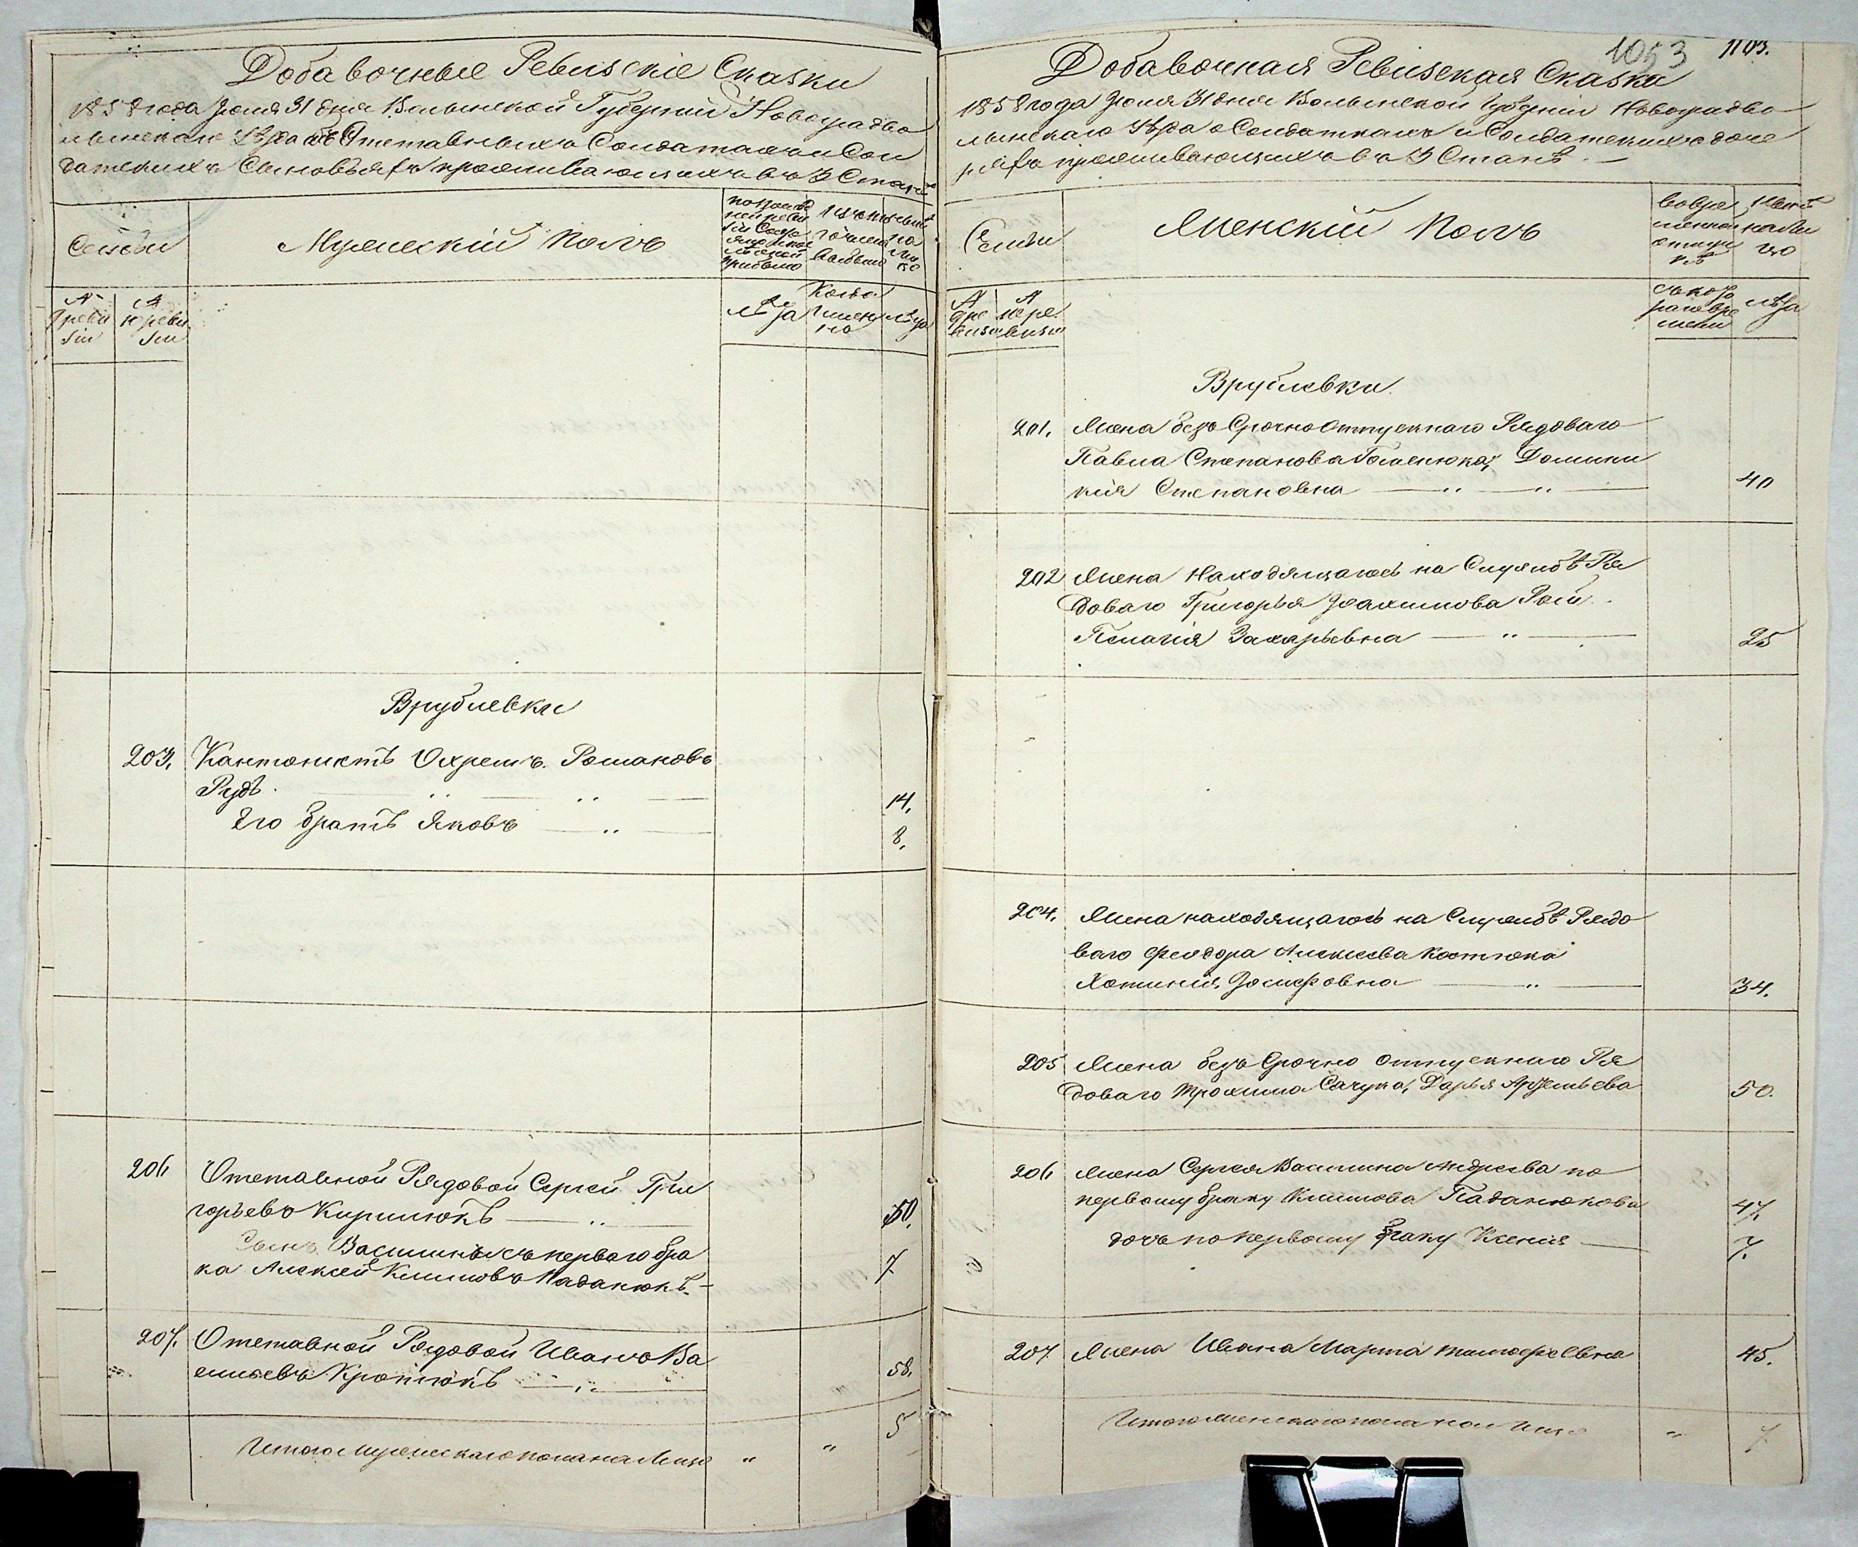 Добавочные Ревизские Сказки
1858 года Июля 31 дня Волынской Губернии Новоградво
лынскаго Уезда объ Отставныхъ Солдатахъ и Сол
датскихъ Сыновьяхъ проживающихъ въ 3 Стане
Семьи
Мужескій Полъ
№ ревизіи
№ ревизіи
лѣта
Когда именно
лѣта
Врублевки
203. Кантонистъ Охремъ Романовъ
Рудъ 14.
Его братъ Яковъ 8.
206 Отставной Рядовой Сергей Гри
горьевъ Кирилюкъ 50.
Сынъ Василины съ перваго бра
ка Алексей Климовъ Паданюкъ 7
207. Отставной Рядовой Иванъ Ва
сильевъ Кропіюкъ 58.
Итого мужескаго пола на Лицо " " 5
1053
1103.
Добавочная Ревизская Сказка
1858 года Июля 31 дня Волынской Губерніи Новоградво
лынскаго Уезда о Солдаткахъ и Солдатскихъ доче
ряхъ проживающихъ въ 3 Стане
Семьи
Женскій Полъ
во временной отлучкѣ
налицо
№ ревизіи
№ ревизіи
съ котораго времени
лѣта
Врублевки.
201. Жена безъ Срочно отпускнаго Рядоваго
Павла Степанова Доминикія
Степановна 40
202 Жена Находящагося на Службѣ Ря
доваго Григорья Іоахимова Рой
Пелагія Захарьевна 25
204. Жена находящагося на Службѣ Рядо
ваго Феодора Алексеева Костюка
Хотинія Іосифовна 34.
205 Жена безъ Срочно отпускнаго Ря
доваго Трохима Сачука, Дарья Артемьева 50.
206 Жена Сергея Василина Андреева по
первому браку Климова Паданюкова 47.
дочь по первому браку Ксенія 7.
207 Жена Ивана Марта Тимофеевна 45.
Итого женскаго пола на Лицо " 7